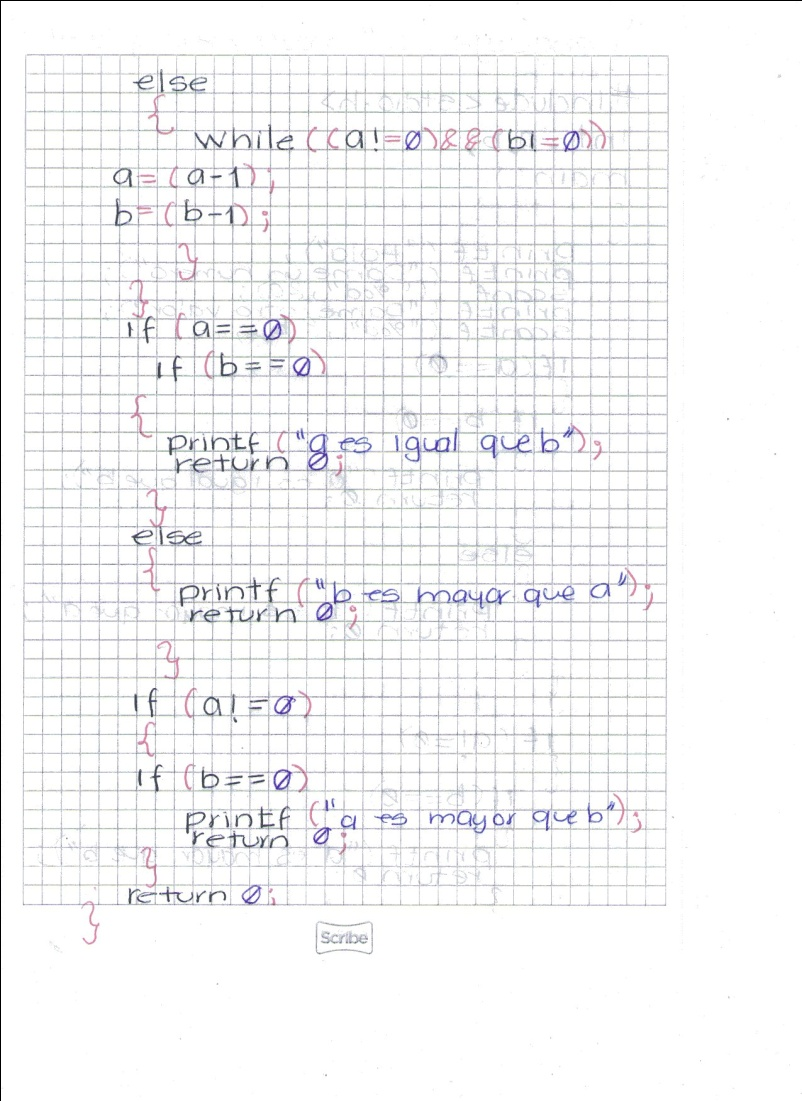 else
{
while ((a!=0)&&(b!=0))
a=(a-1);
b=(b-1);
}
}
if (a==0)
if (b==0)
{
printf ("a es igual que b");
return 0;
}
else
{
printf ("b es mayor que a");
return 0;
}
if (a!=0)
{
if (b==0)
printf ("a es mayor que b");
return 0;
}
return 0;
}
Scribe